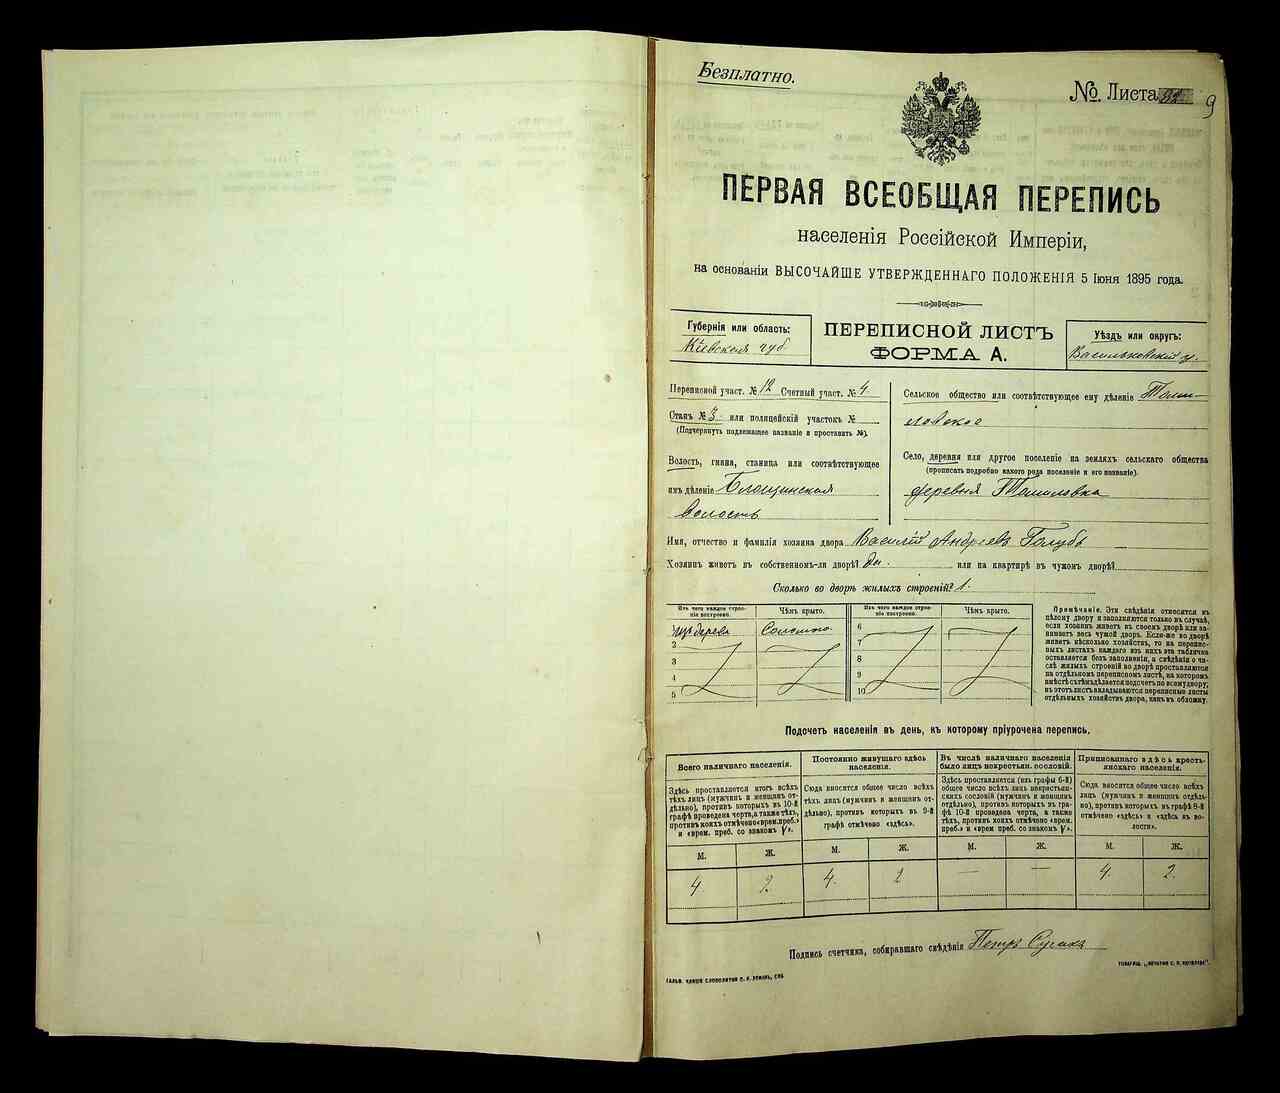 Безплатно.
№ Листа 9
ПЕРВАЯ ВСЕОБЩАЯ ПЕРЕПИСЬ
населенія Россійской Имперіи,
на основаніи ВЫСОЧАЙШЕ УТВЕРЖДЕННАГО ПОЛОЖЕНІЯ 5 Іюня 1895 года.
Губернія или область:
Кіевская губ
ПЕРЕПИСНОЙ ЛИСТЪ
ФОРМА А.
Уѣздъ или округъ:
Васильковскій у.
Переписной участ. № 12 Счетный участ. № 4
Станъ № 3 или полицейскій участокъ №
(Подчеркнуть надлежащее названіе и проставить №).
Волость, гмина, станица или соотвѣтствующее
имъ дѣленіе Блощинская
волость
Сельское общество или соотвѣтствующее ему дѣленіе Томи-
ловское
Село, деревня или другое поселеніе на земляхъ сельскаго общества
(прописать подробно какого рода поселеніе и его названіе).
деревня Томиловка
Имя, отчество и фамилія хозяина двора Василій Андреевъ Голубъ
Хозяинъ живетъ въ собственномъ-ли дворѣ? да. или на квартирѣ въ чужомъ дворѣ?
Сколько во дворѣ жилыхъ строеній? 1.
Изъ чего каждое строе-
ніе построено.
Чѣмъ крыто.
Изъ чего каждое строе-
ніе построено.
Чѣмъ крыто.
изъ дерева Соломою.
2
3
4
5
6
7
8
9
10
Примѣчаніе. Эти свѣдѣнія относятся къ
цѣлому двору и заполняются только въ случаѣ,
если хозяинъ живетъ въ своемъ дворѣ или за-
нимаетъ весь чужой дворъ. Если-же во дворѣ
живетъ нѣсколько хозяйствъ, то на перепис-
ныхъ листахъ каждаго изъ нихъ эта табличка
оставляется безъ заполненія, а свѣдѣнія о чи-
слѣ жилыхъ строеній во дворѣ проставляются
на отдѣльномъ переписномъ листѣ, на которомъ
вмѣстѣ съ тѣмъ дѣлается подсчетъ по всему двору;
въ этотъ листъ вкладываются переписные листы
отдѣльныхъ хозяйствъ двора, какъ въ обложку.
Подсчетъ населенія въ день, къ которому пріурочена перепись.
Всего наличнаго населенія.
Здѣсь проставляется итогъ всѣхъ
тѣхъ лицъ (мужчинъ и женщинъ от-
дѣльно), противъ которыхъ въ 10-й
графѣ проведена черта, а также тѣхъ,
противъ коихъ отмѣчено «врем. преб.»
и «врем. преб. со знакомъ V».
Постоянно живущаго здѣсь
населенія.
Сюда вносится общее число всѣхъ
тѣхъ лицъ (мужчинъ и женщинъ от-
дѣльно), противъ которыхъ въ 9-й
графѣ отмѣчено «здѣсь».
Въ числѣ наличнаго населенія
было лицъ некрестьян. сословій.
Здѣсь проставляется (изъ графы 6-й)
общее число всѣхъ лицъ некрестьян-
скихъ сословій (мужчинъ и женщинъ
отдѣльно), противъ которыхъ въ гра-
фѣ 10-й проведена черта, а также
тѣхъ, противъ коихъ отмѣчено «врем.
преб.» и «врем преб. со знаком V».
Приписаннаго здѣсь кресть-
янскаго населенія.
Сюда вносится общее число всѣхъ
лицъ (мужчинъ и женщинъ отдѣль-
но), противъ которыхъ въ графѣ 8-й
отмѣчено «здѣсь» и «здѣсь въ во-
лости».
М. Ж. М. Ж. М. Ж. М. Ж.
4. 2. 4. 2 — — 4. 2.
Подпись счетчика, собиравшаго свѣдѣнія Петръ